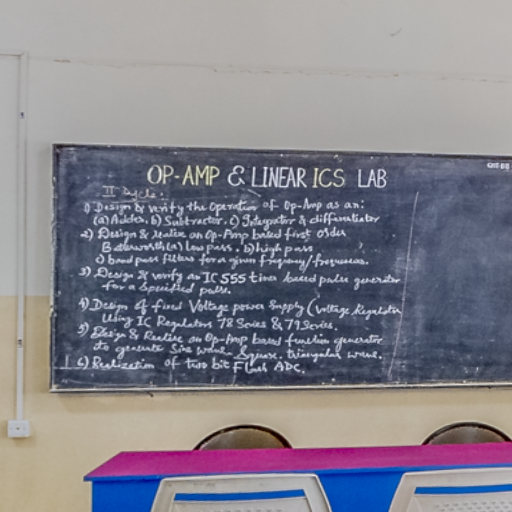 OP-AMP & LINEAR ICS LAB
II Cycle:
1) Design & Verify the Operation of Op-Amp as an:
(a) Adder. b) Subtractor. c) Integrator & differentiator
2) Design & realize an Op-Amp based first order
Butterworth (a) low pass. b) high pass
c) band pass filters for a given frequency/frequencies.
3) Design & verify an IC 555 timer based pulse generator
for a specified pulse.
4) Design of fixed Voltage power Supply (voltage Regulator
Using IC Regulators 78 Series & 79 Series.
5) Design & Realise an Op-Amp based function generator
to generate Sine wave. Square. triangular wave.
6) Realization of two bit Flash ADC.